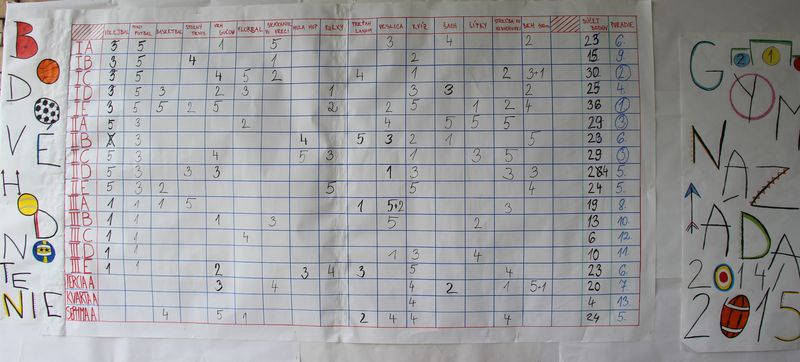 BODOVÉ HODNOTENIE
VOLEJBAL MINI FUTBAL BASKETBAL STOLNÝ TENIS VRH GUĽOU FLORBAL SKÁKANIE VO VRECI HULA HOP KOLKY PREŤAH. LANOM VESLICA KVÍZ ŠACH LÝTKY BEH 800m SÚČET BODOV PORADIE
I A 3 5 1 5 3 4 2 23 6.
I B 3 5 4 1 2 15 9.
I C 3 5 4 5 2 4 1 2 3+1 30 2
I D 3 5 3 2 3 1 3 3 2 25 4.
I E 3 5 5 2 5 2 2 5 1 2 4 36 1
II A 5 3 2 4 5 5 5 29 3
II B 3 4 5 3 2 1 5 23 6
II C 5 3 4 5 3 1 3 5 29 3
II D 5 3 3 3 1 3 3 3 5.
II E 5 3 2 5 5 4 24 5.
III A 1 1 1 5 1 5+2 3 19 8.
III B 1 1 1 3 5 2 13 10.
III C 1 1 4 6 12.
III D 1 1 1 3 4 10 11.
III E 1 1 2 3 4 3 5 4 23 6.
TERCIA A 3 4 4 2 1 5+1 20 7.
KVARTA A 4 4 13.
SEPTIMA A 4 5 1 2 4 4 4 24 5.
2 1
GYM
NÁZ
ÁDA
2014/
2015